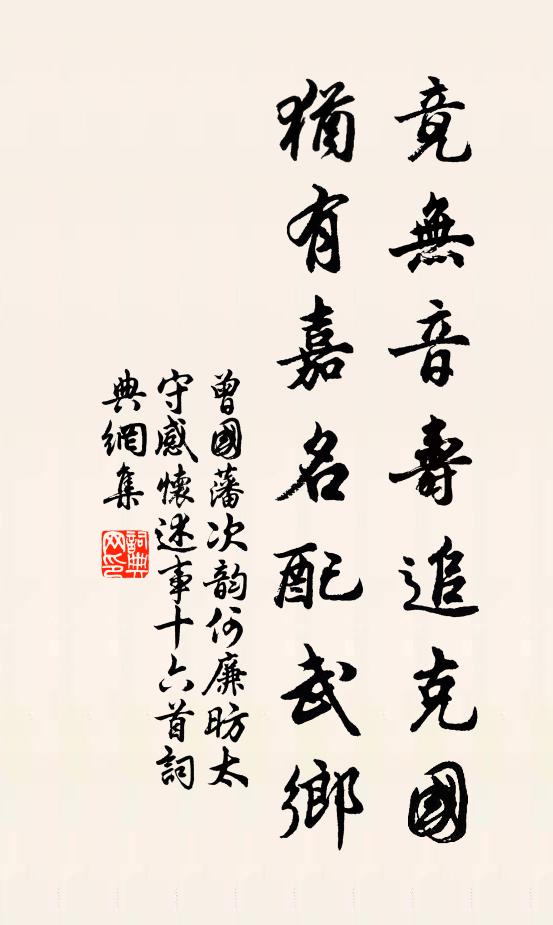 竟無音壽追克國
猶有嘉名配武鄉
曾國藩次韵何廉昉太
守感懷述事十六首詞
典網集
詞典网印